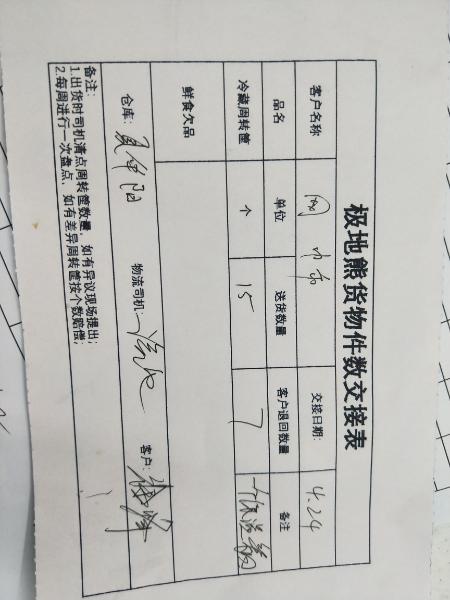 极地熊货物件数交接表
客户名称 交接日期: 4.24
品名 单位 送货数量 客户退回数量 备注
冷藏周转筐 个 15 7
鲜食欠品
仓库: 物流司机: 客户:
备注:
1.出货时司机清点周转筐数量，如有异议现场提出;
2.每周进行一次盘点，如有差异周转筐按个数赔偿;